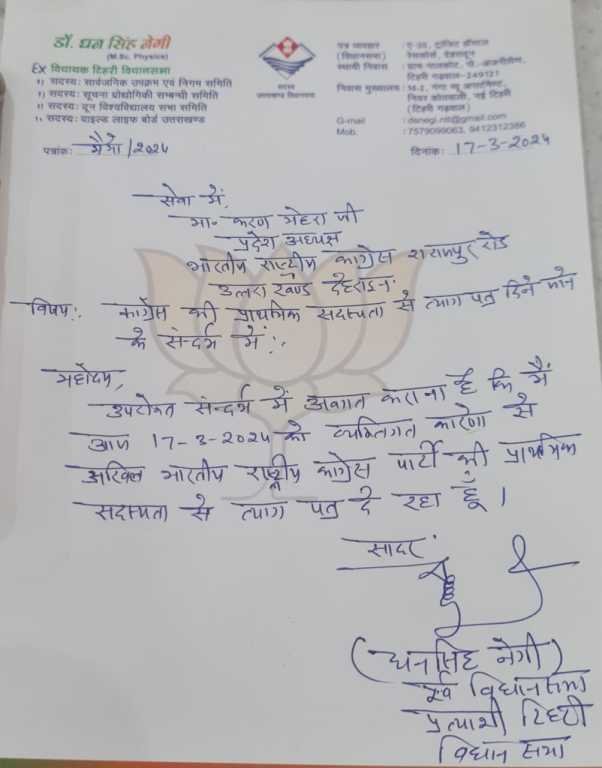 डॉ. धन सिंह नेगी
(M.Sc. Physics)
Ex विधायक टिहरी विधानसभा
सदस्य: सार्वजनिक उपक्रम एवं निगम समिति
सदस्य: सूचना प्रौद्योगिकी सम्बन्धी समिति
सदस्य: दून विश्वविद्यालय सभा समिति
सदस्य: वाइल्ड लाइफ बोर्ड उत्तराखण्ड
पत्रांक: मैमो /2024
सदस्य
उत्तराखण्ड विधानसभा
पत्र व्यवहार
(विधानसभा)
रेसकोर्स, देहरादून
स्थायी निवास : ग्राम पालकोट, पो.
टिहरी गढ़वाल-249121
निवास मुख्यालय
नियर कोतवाली, नई टिहरी
(टिहरी गढ़वाल)
G-mail : dsnegi.ntt@gmail.com
Mob. : 7579099063, 9412312386
दिनांक: 17-3-2024
सेवा में,
मा० करण मेहरा जी
प्रदेश अध्यक्ष
भारतीय राष्ट्रीय कांग्रेस राजपुर रोड
उत्तराखण्ड देहरादून
विषय:. कांग्रेस की प्राथमिक सदस्यता से त्याग पत्र दिने जाने
के सन्दर्भ में:.
महोदय,
उपरोक्त सन्दर्भ में अवगत कराना है कि मैं
आज 17-3-2024 को व्यक्तिगत कारणो से
अखिल भारतीय राष्ट्रीय कांग्रेस पार्टी की प्राथमिक
सदस्यता से त्याग पत्र दे रहा हूँ।
सादर
(धनसिंह नेगी)
पूर्व विधानसभा
प्रत्याशी टिहरी
विधान सभा